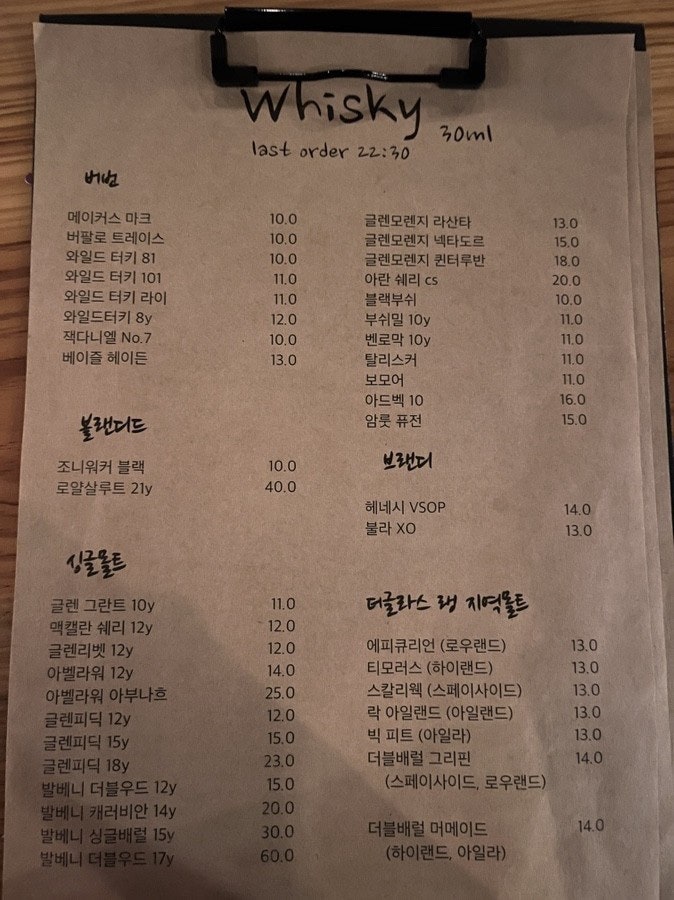 Whisky 30ml
last order 22:30
버번
메이커스 마크 10.0
버팔로 트레이스 10.0
와일드 터키 81 10.0
와일드 터키 101 11.0
와일드 터키 라이 11.0
와일드터키 8y 12.0
잭다니엘 No.7 10.0
베이즐 헤이든 13.0
블랜디드
조니워커 블랙 10.0
로얄살루트 21y 40.0
싱글몰트
글렌 그란트 10y 11.0
맥캘란 쉐리 12y 12.0
글렌리벳 12y 12.0
아벨라워 12y 14.0
아벨라워 아부나흐 25.0
글렌피딕 12y 12.0
글렌피딕 15y 15.0
글렌피딕 18y 23.0
발베니 더블우드 12y 15.0
발베니 캐러비안 14y 20.0
발베니 싱글배럴 15y 30.0
발베니 더블우드 17y 60.0
글렌모렌지 라산타 13.0
글렌모렌지 넥타도르 15.0
글렌모렌지 퀸터루반 18.0
아란 쉐리 cs 20.0
블랙부쉬 10.0
부쉬밀 10y 11.0
벤로막 10y 11.0
탈리스커 11.0
보모어 11.0
아드벡 10 16.0
암룻 퓨전 15.0
브랜디
헤네시 VSOP 14.0
불라 XO 13.0
더글라스 랭 지역몰트
에피큐리언 (로우랜드) 13.0
티모러스 (하이랜드) 13.0
스칼리웩 (스페이사이드) 13.0
락 아일랜드 (아일랜드) 13.0
빅 피트 (아일라) 13.0
더블배럴 그리핀 14.0
(스페이사이드, 로우랜드)
더블배럴 머메이드 14.0
(하이랜드, 아일라)